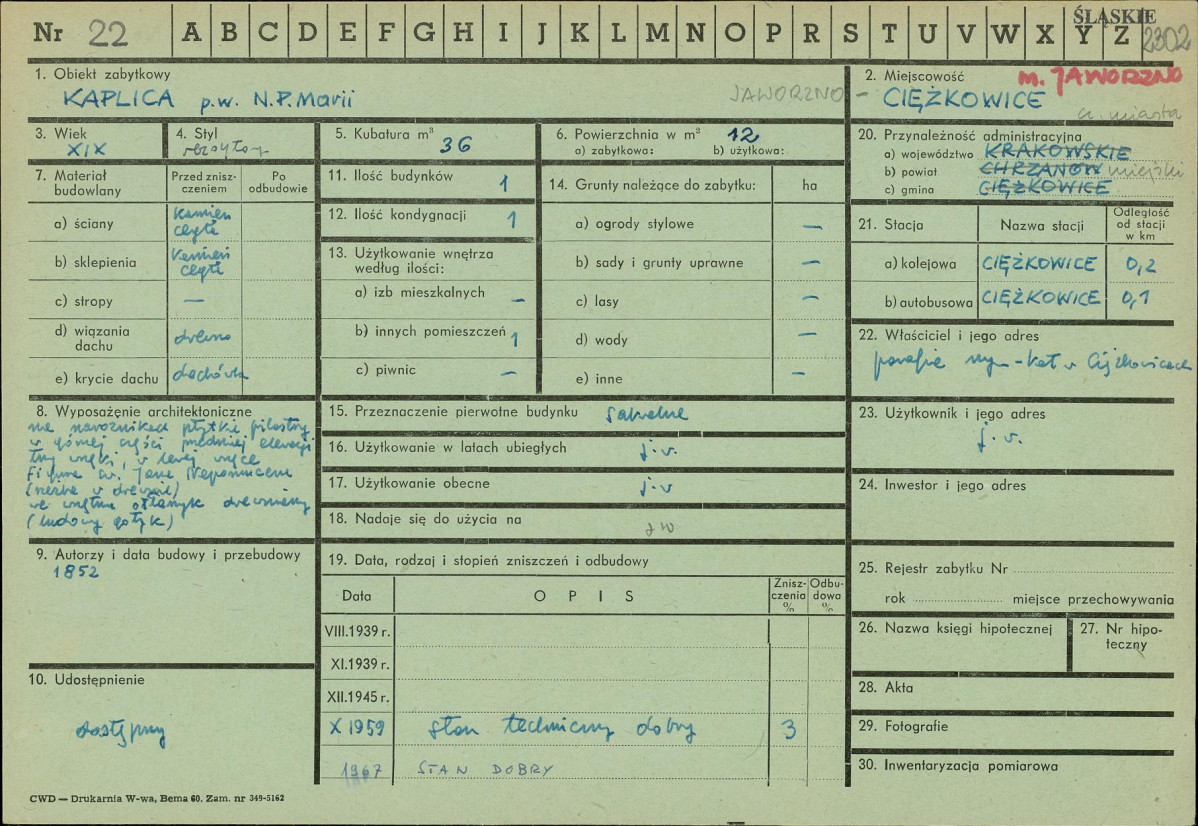 Nr 22 A B C D E F G H I J K L M N O P R S T U V W X Y Z
ŚLĄSKIE
2302
1. Obiekt zabytkowy
KAPLICA p.w. N.P. Marii
JAWORZNO –
2. Miejscowość
m. JAWORZNO
CIĘŻKOWICE
miasta
3. Wiek
XIX
4. Styl
5. Kubatura m³
36
6. Powierzchnia w m² 12
a) zabytkowa: b) użytkowa:
20. Przynależność administracyjna
a) województwo KRAKOWSKIE
b) powiat CHRZANÓW miejski
c) gmina CIĘŻKOWICE
7. Materiał budowlany
Przed zniszczeniem
Po odbudowie
a) ściany kamień cegła
b) sklepienia kamień cegła
c) stropy —
d) wiązania dachu drewno
e) krycie dachu dachówka
11. Ilość budynków 1
12. Ilość kondygnacji 1
13. Użytkowanie wnętrza według ilości:
a) izb mieszkalnych —
b) innych pomieszczeń 1
c) piwnic —
14. Grunty należące do zabytku: ha
a) ogrody stylowe —
b) sady i grunty uprawne —
c) lasy —
d) wody —
e) inne —
21. Stacja
Nazwa stacji
Odległość od stacji w km
a) kolejowa CIĘŻKOWICE 0,2
b) autobusowa CIĘŻKOWICE 0,1
22. Właściciel i jego adres
parafia rzym-kat w Ciężkowicach
8. Wyposażenie architektoniczne
na narożnikach płytkie pilastry
w górnej części przedniej elewacji
trzy wnęki, w lewej wnęce
Figura św. Jana Nepomucena
(rzeźba w drewnie)
we wnętrzu ołtarzyk drewniany
(ludowy gotyk)
15. Przeznaczenie pierwotne budynku sakralne
16. Użytkowanie w latach ubiegłych j.w.
17. Użytkowanie obecne j.w
18. Nadaje się do użycia na j w
23. Użytkownik i jego adres
j.w.
24. Inwestor i jego adres
9. Autorzy i data budowy i przebudowy
1852
19. Data, rodzaj i stopień zniszczeń i odbudowy
Data
OPIS
Zniszczenia %
Odbudowa %
VIII.1939 r.
XI.1939 r.
XII.1945 r.
X 1959 stan techniczny dobry 3
1967 STAN DOBRY
25. Rejestr zabytku Nr
rok miejsce przechowywania
26. Nazwa księgi hipotecznej
27. Nr hipoteczny
10. Udostępnienie
dostępny
28. Akta
29. Fotografie
30. Inwentaryzacja pomiarowa
CWD — Drukarnia W-wa, Bema 60. Zam. nr 349-5162